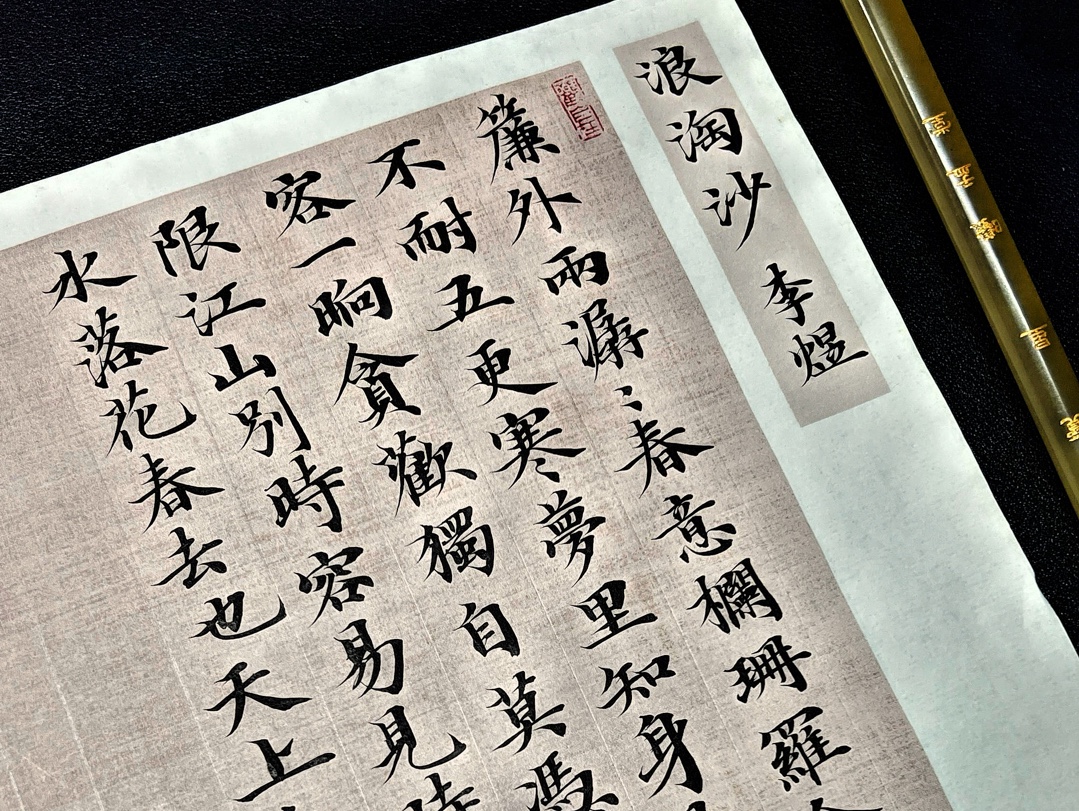 浪淘沙 李煜
簾外雨潺〻春意欄珊羅
不耐五更寒夢里知身
客一晌貪歡獨自莫憑
限江山別時容易見時
水落花春去也天上